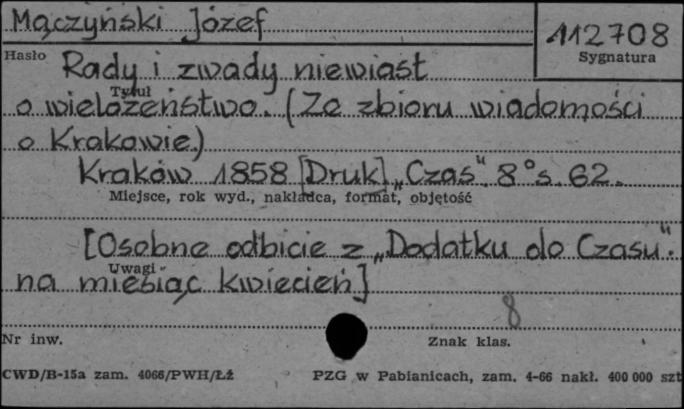 Mączyński Józef
112708
Hasło
Sygnatura
Rady i zwady niewiast
Tytuł
o wielożeństwo. (Ze zbioru wiadomości
o Krakowie.)
Kraków 1858 [Druk] „Czas". 8° s. 62.
Miejsce, rok wyd., nakładca, format, objętość
[Osobne odbicie z „Dodatku do Czasu".
Uwagi
na miesiąc kwiecień]
8
Nr inw.
Znak klas.
CWD/B-15a zam. 4066/PWH/Łż
PZG w Pabianicach, zam. 4-66 nakł. 400 000 szt